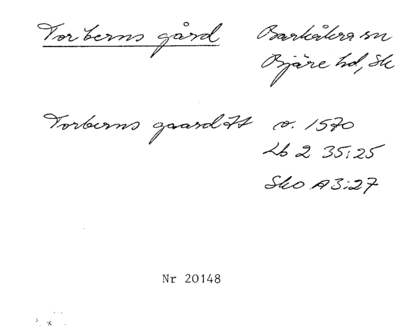 Torberns gård Barkåkra sn
Bjäre hd, Sk
Torberns gaard Js c. 1570
Lb 2 35:25
Sko A3:27
Nr 20148